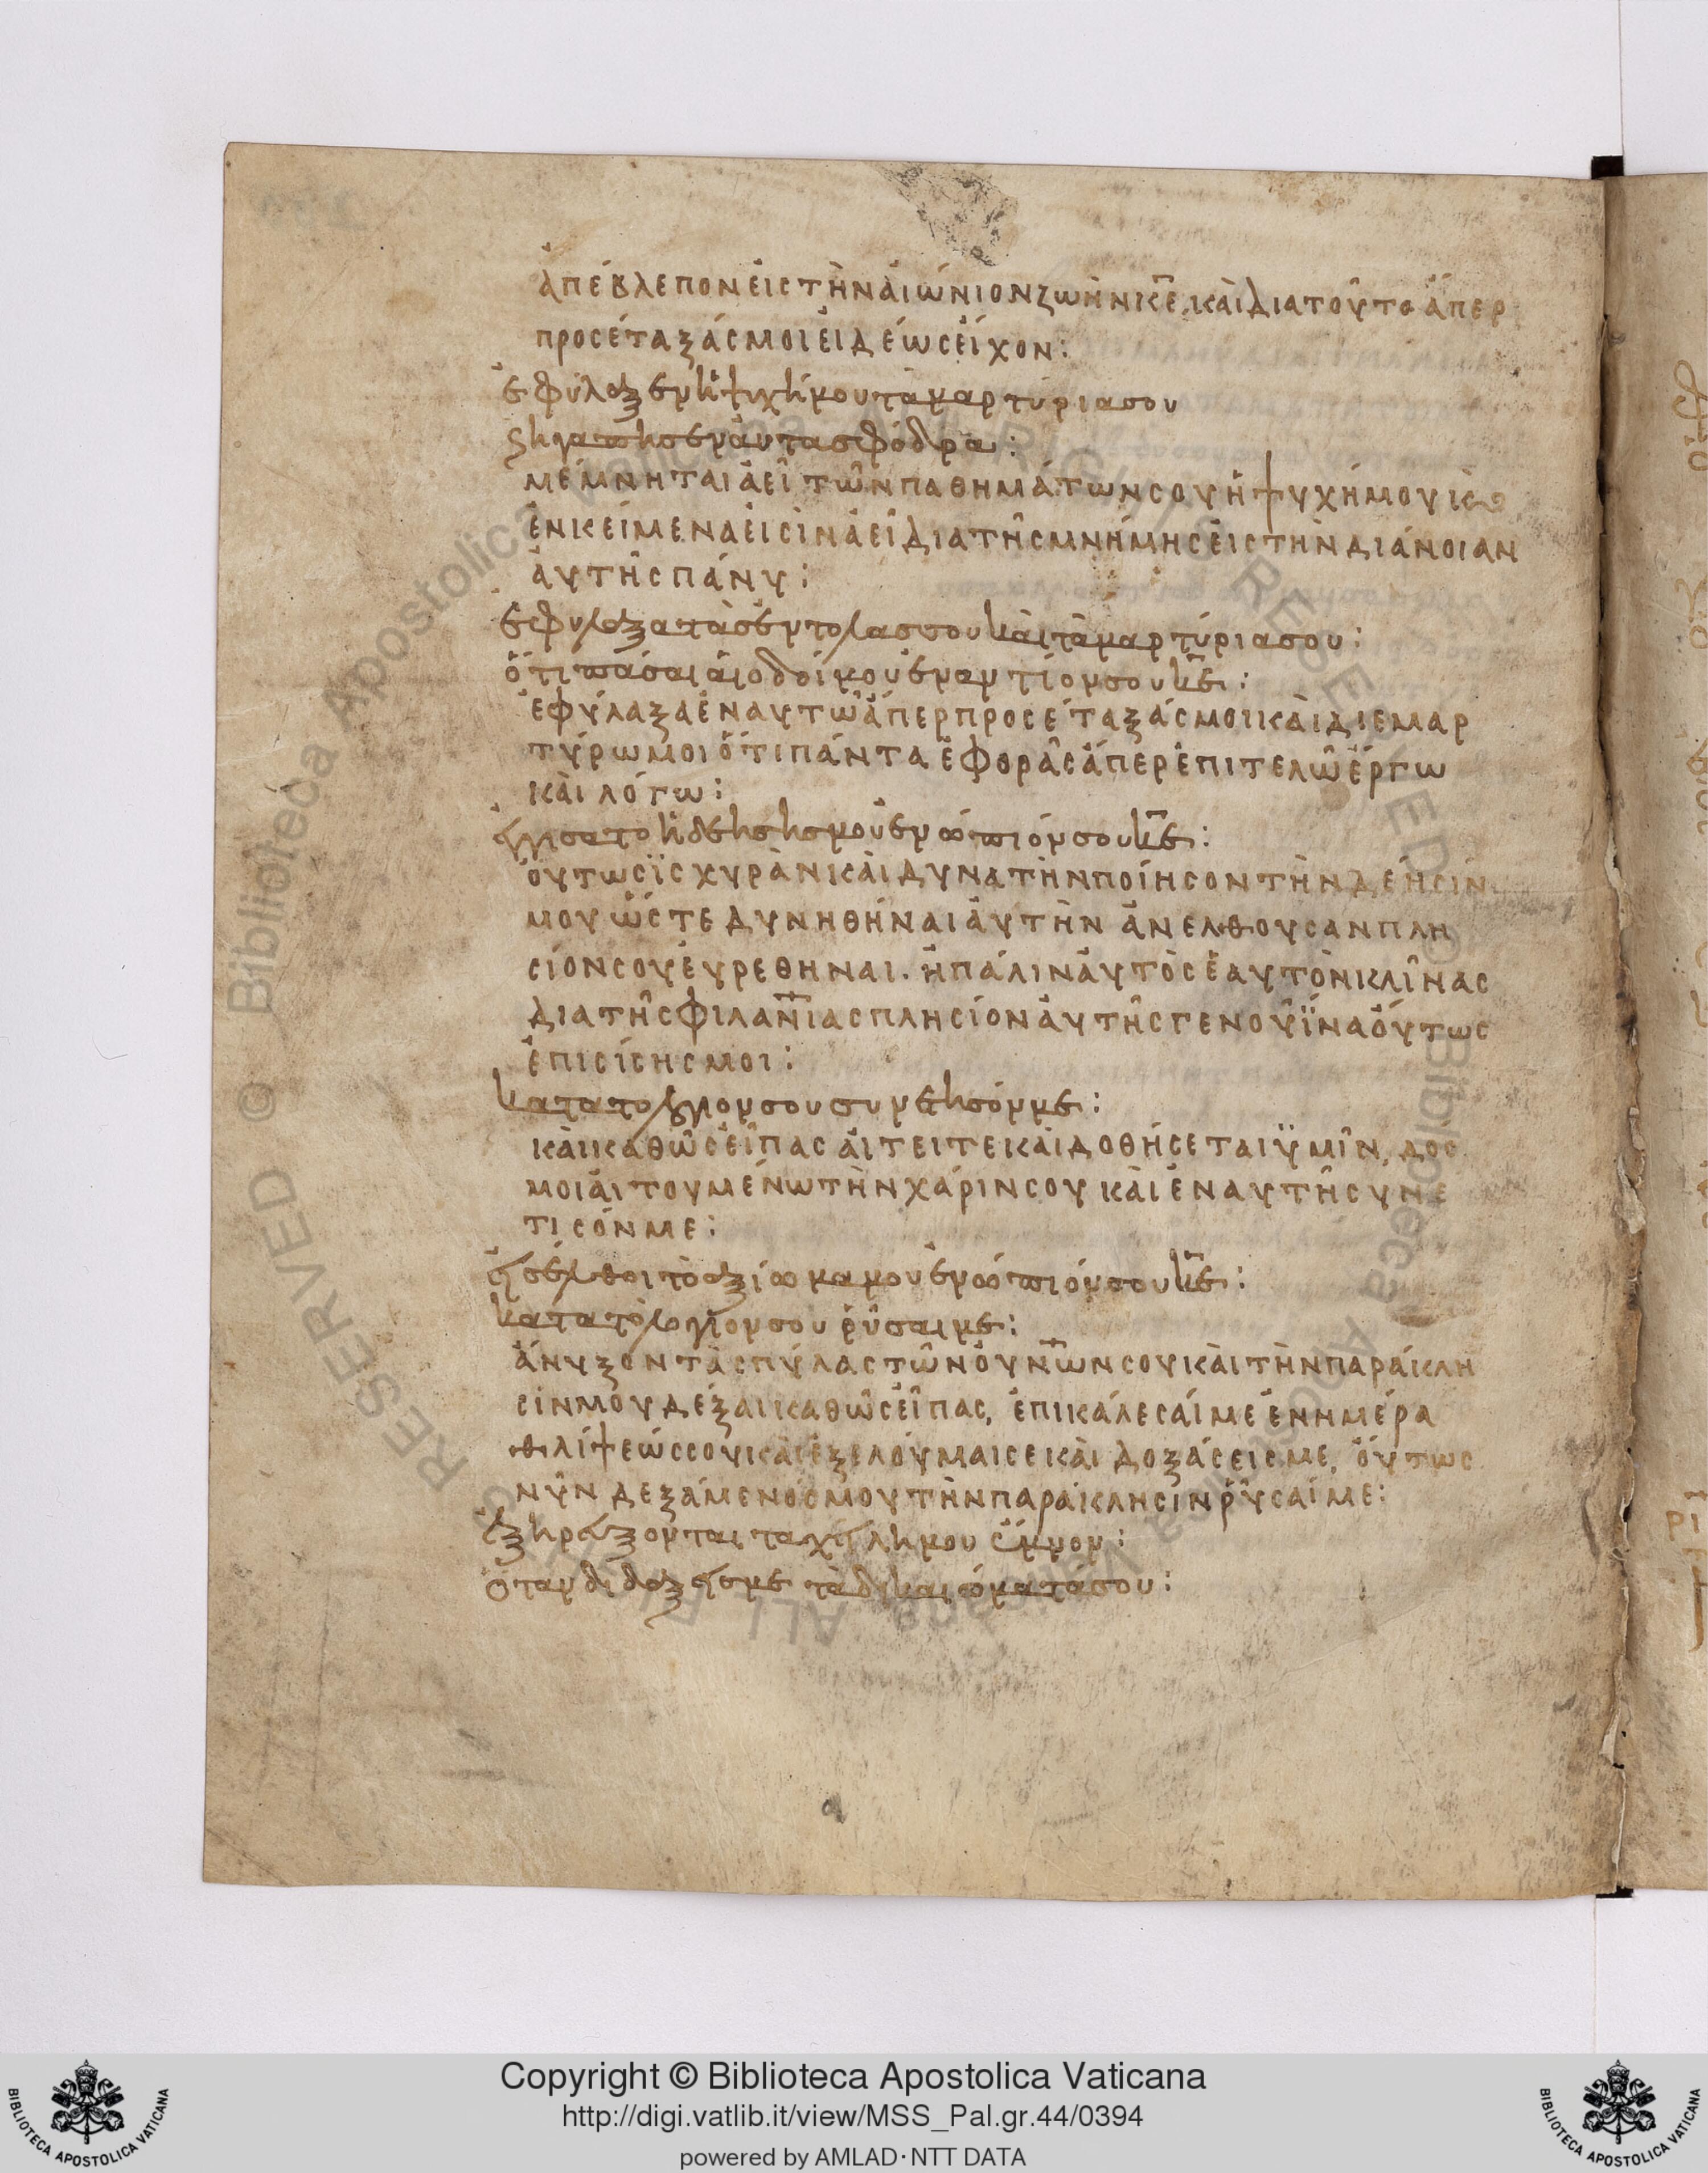 ἀπέβλεπον εἰς τὴν αἰώνιον ζωὴν κ̅ε̅, καὶ διατοῦτο ἅπερ
προσέταξάς μοι εἰ δέως εἶχον:
ἐφύλαξεν ἡ ψυχή μου τὰ μαρτύρια σου
ϗ ἠγάπησεν αὐτὰ σφόδρα:
μέμνηται ἀεὶ τῶν παθημάτων σου ἡ ψυχή μου κ̅ε̅
ἐνκείμενα εἰσὶν ἀεὶ διὰ τῆς μνήμης εἰς τὴν διάνοιαν
αὐτῆς πάνυ:
ἐφύλαξα τὰς ἐντολας σου καὶ τὰ μαρτύρια σου:
ὅτι πάσαι αἱ οδοί μου ἐναντίον σου κ̅ε̅:
ἐφύλαξα ἐν αυτῶ ἅπερ προσέταξάς μοι καὶ διεμαρ
τύρω μοι ὅτι πάντα ἐφορᾶς ἅπερ ἐπιτελῶ ἔργω
καὶ λόγω:
ἐγγισατο ἡ δέησησ μου ἐνώπιόν σου κ̅ε̅:
ὁυτως ϊσχυρὰν καὶ δυνατὴν ποίησον τὴν δεήσίν
μου ὥστε δυνηθήναι αὐτὴν ἀνελθουσαν πλη
σίον σου ἑυρεθηναι. ἢ πάλιν αὐτὸς ἑαυτὸν κλῖνας
διὰ τῆς φιλαν̅ιας πλησίον αὐτῆς γενοῦ ϊνα ὁύτως
ἐπισίσης μοι:
κατα το λόγιον σου συνέτησόν με:
καὶ καθῶς εἶπας αἰτειτε καὶ δοθήσεται ϋμῖν, δός
μοι αἰτουμένω τὴν χάριν σου καὶ ἐν αυτῆ συνέ
τισόν με:
εἰσέλθοι τὸ ἀξίωμα μου ἐνώπιόν σου κ̅ε̅:
κατα τὸ λόγιον σου ῥῦσαι με:
ἄνυξον τὰς πύλας τῶν ὀυν̅ῶν σου καὶ τὴν παράκλη
σίν μου δέξαι καθῶς εἶπας, ἐπικάλεσαί με ἐν ημέρα
θλίψεώς σου καὶ ἐξελούμαι σε καὶ δοξάσεις με, ὁύτως
νῦν δεξάμενός μου τὴν παράκλησίν ῥῦσαί με:
ἐξηρεύξονται τα χείλη μου ὕμνον:
ὅταν διδάξεις με τὰ δικαιώματά σου:
Copyright © Biblioteca Apostolica Vaticana
http://digi.vatlib.it/view/MSS_Pal.gr.44/0394
powered by AMLAD·NTT DATA